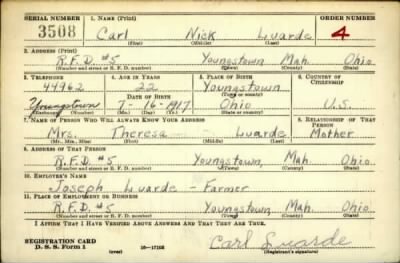 SERIAL NUMBER 1. NAME (Print) ORDER NUMBER
3508 Carl Nick Luarde 4
(First) (Middle) (Last)
2. ADDRESS (Print)
R.F.D. #5 Youngstown Mah. Ohio
(Number and street or R. F. D. number) (Town) (County) (State)
3. TELEPHONE 4. AGE IN YEARS 5. PLACE OF BIRTH 6. COUNTRY OF CITIZENSHIP
44962 22 Youngstown
DATE OF BIRTH (Town or county)
Youngstown 7-16-1917 Ohio U.S.
(Exchange) (Number) (Mo.) (Day) (Yr.) (State or country)
7. NAME OF PERSON WHO WILL ALWAYS KNOW YOUR ADDRESS 8. RELATIONSHIP OF THAT PERSON
Mrs. Theresa Luarde Mother
(Mr., Mrs., Miss) (First) (Middle) (Last)
9. ADDRESS OF THAT PERSON
R.F.D. #5 Youngstown, Mah. Ohio
(Number and street or R. F. D. number) (Town) (County) (State)
10. EMPLOYER'S NAME
Joseph Luarde - Farmer
11. PLACE OF EMPLOYMENT OR BUSINESS
R.F.D. #5 Youngstown, Mah. Ohio
(Number and street or R. F. D. number) (Town) (County) (State)
I AFFIRM THAT I HAVE VERIFIED ABOVE ANSWERS AND THAT THEY ARE TRUE.
REGISTRATION CARD
D. S. S. Form 1 (over) 16-17105 Carl Luarde
(Registrant's signature)